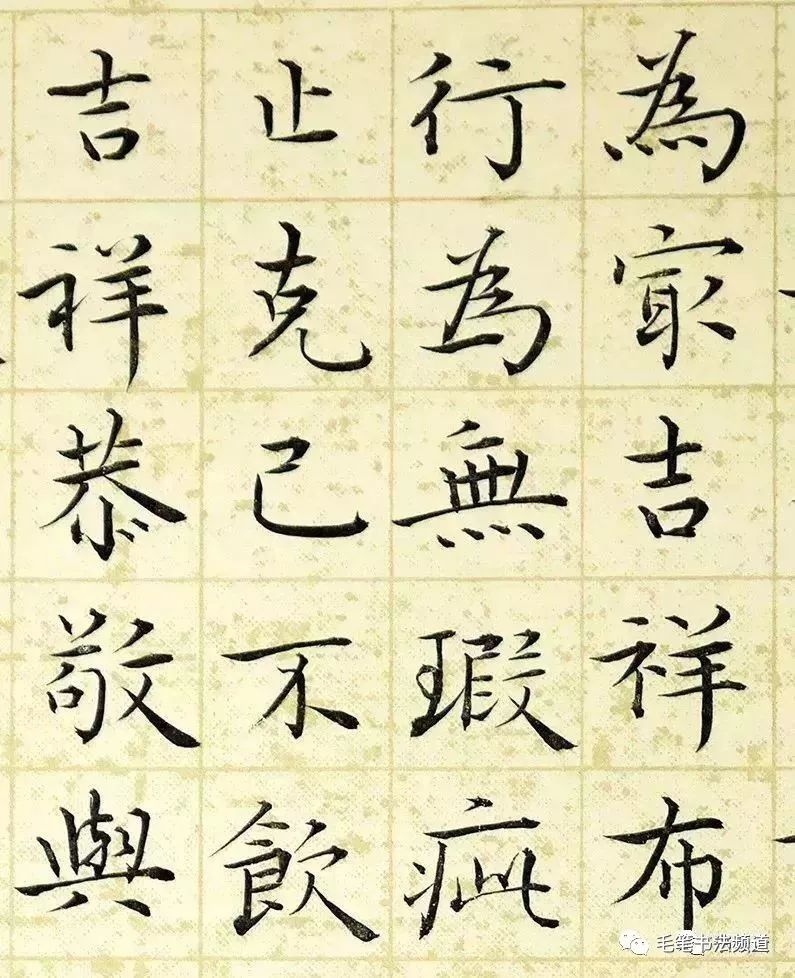 為冣吉祥布
行為無瑕疵
止克己不飲
吉祥恭敬與
毛笔书法频道